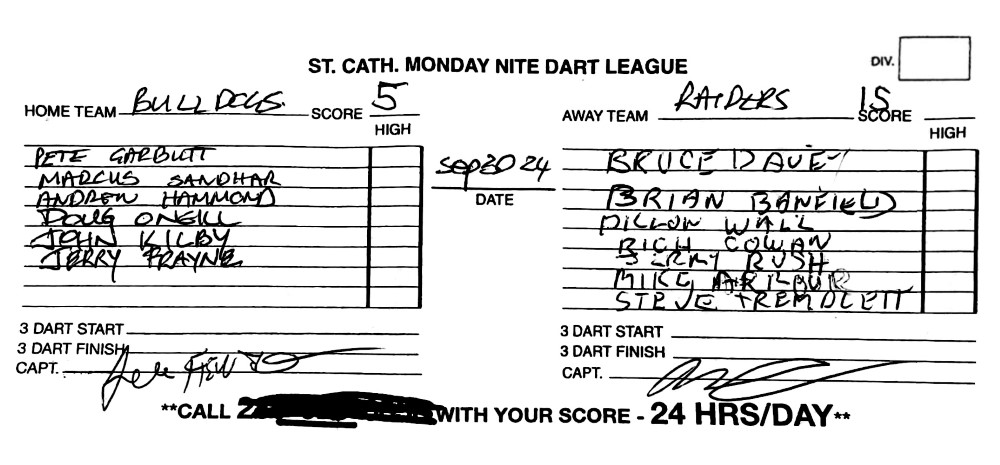 DIV.
ST. CATH. MONDAY NITE DART LEAGUE
HOME TEAM BULLDOGS. SCORE 5
HIGH
PETE GARBUTT
MARCUS SANDHAR
ANDREW HAMMOND
DOUG ONEILL
JOHN KILBY
JERRY FRAYNE
3 DART START
3 DART FINISH
CAPT.
Sep 30 24
DATE
AWAY TEAM RAIDERS 15 SCORE
HIGH
BRUCE DAVEY
BRIAN BANFIELD
DILLON WALL
RICH COWAN
RUSH
MIKE
STEVE TREMBLETT
3 DART START
3 DART FINISH
CAPT.
**CALL WITH YOUR SCORE - 24 HRS/DAY**